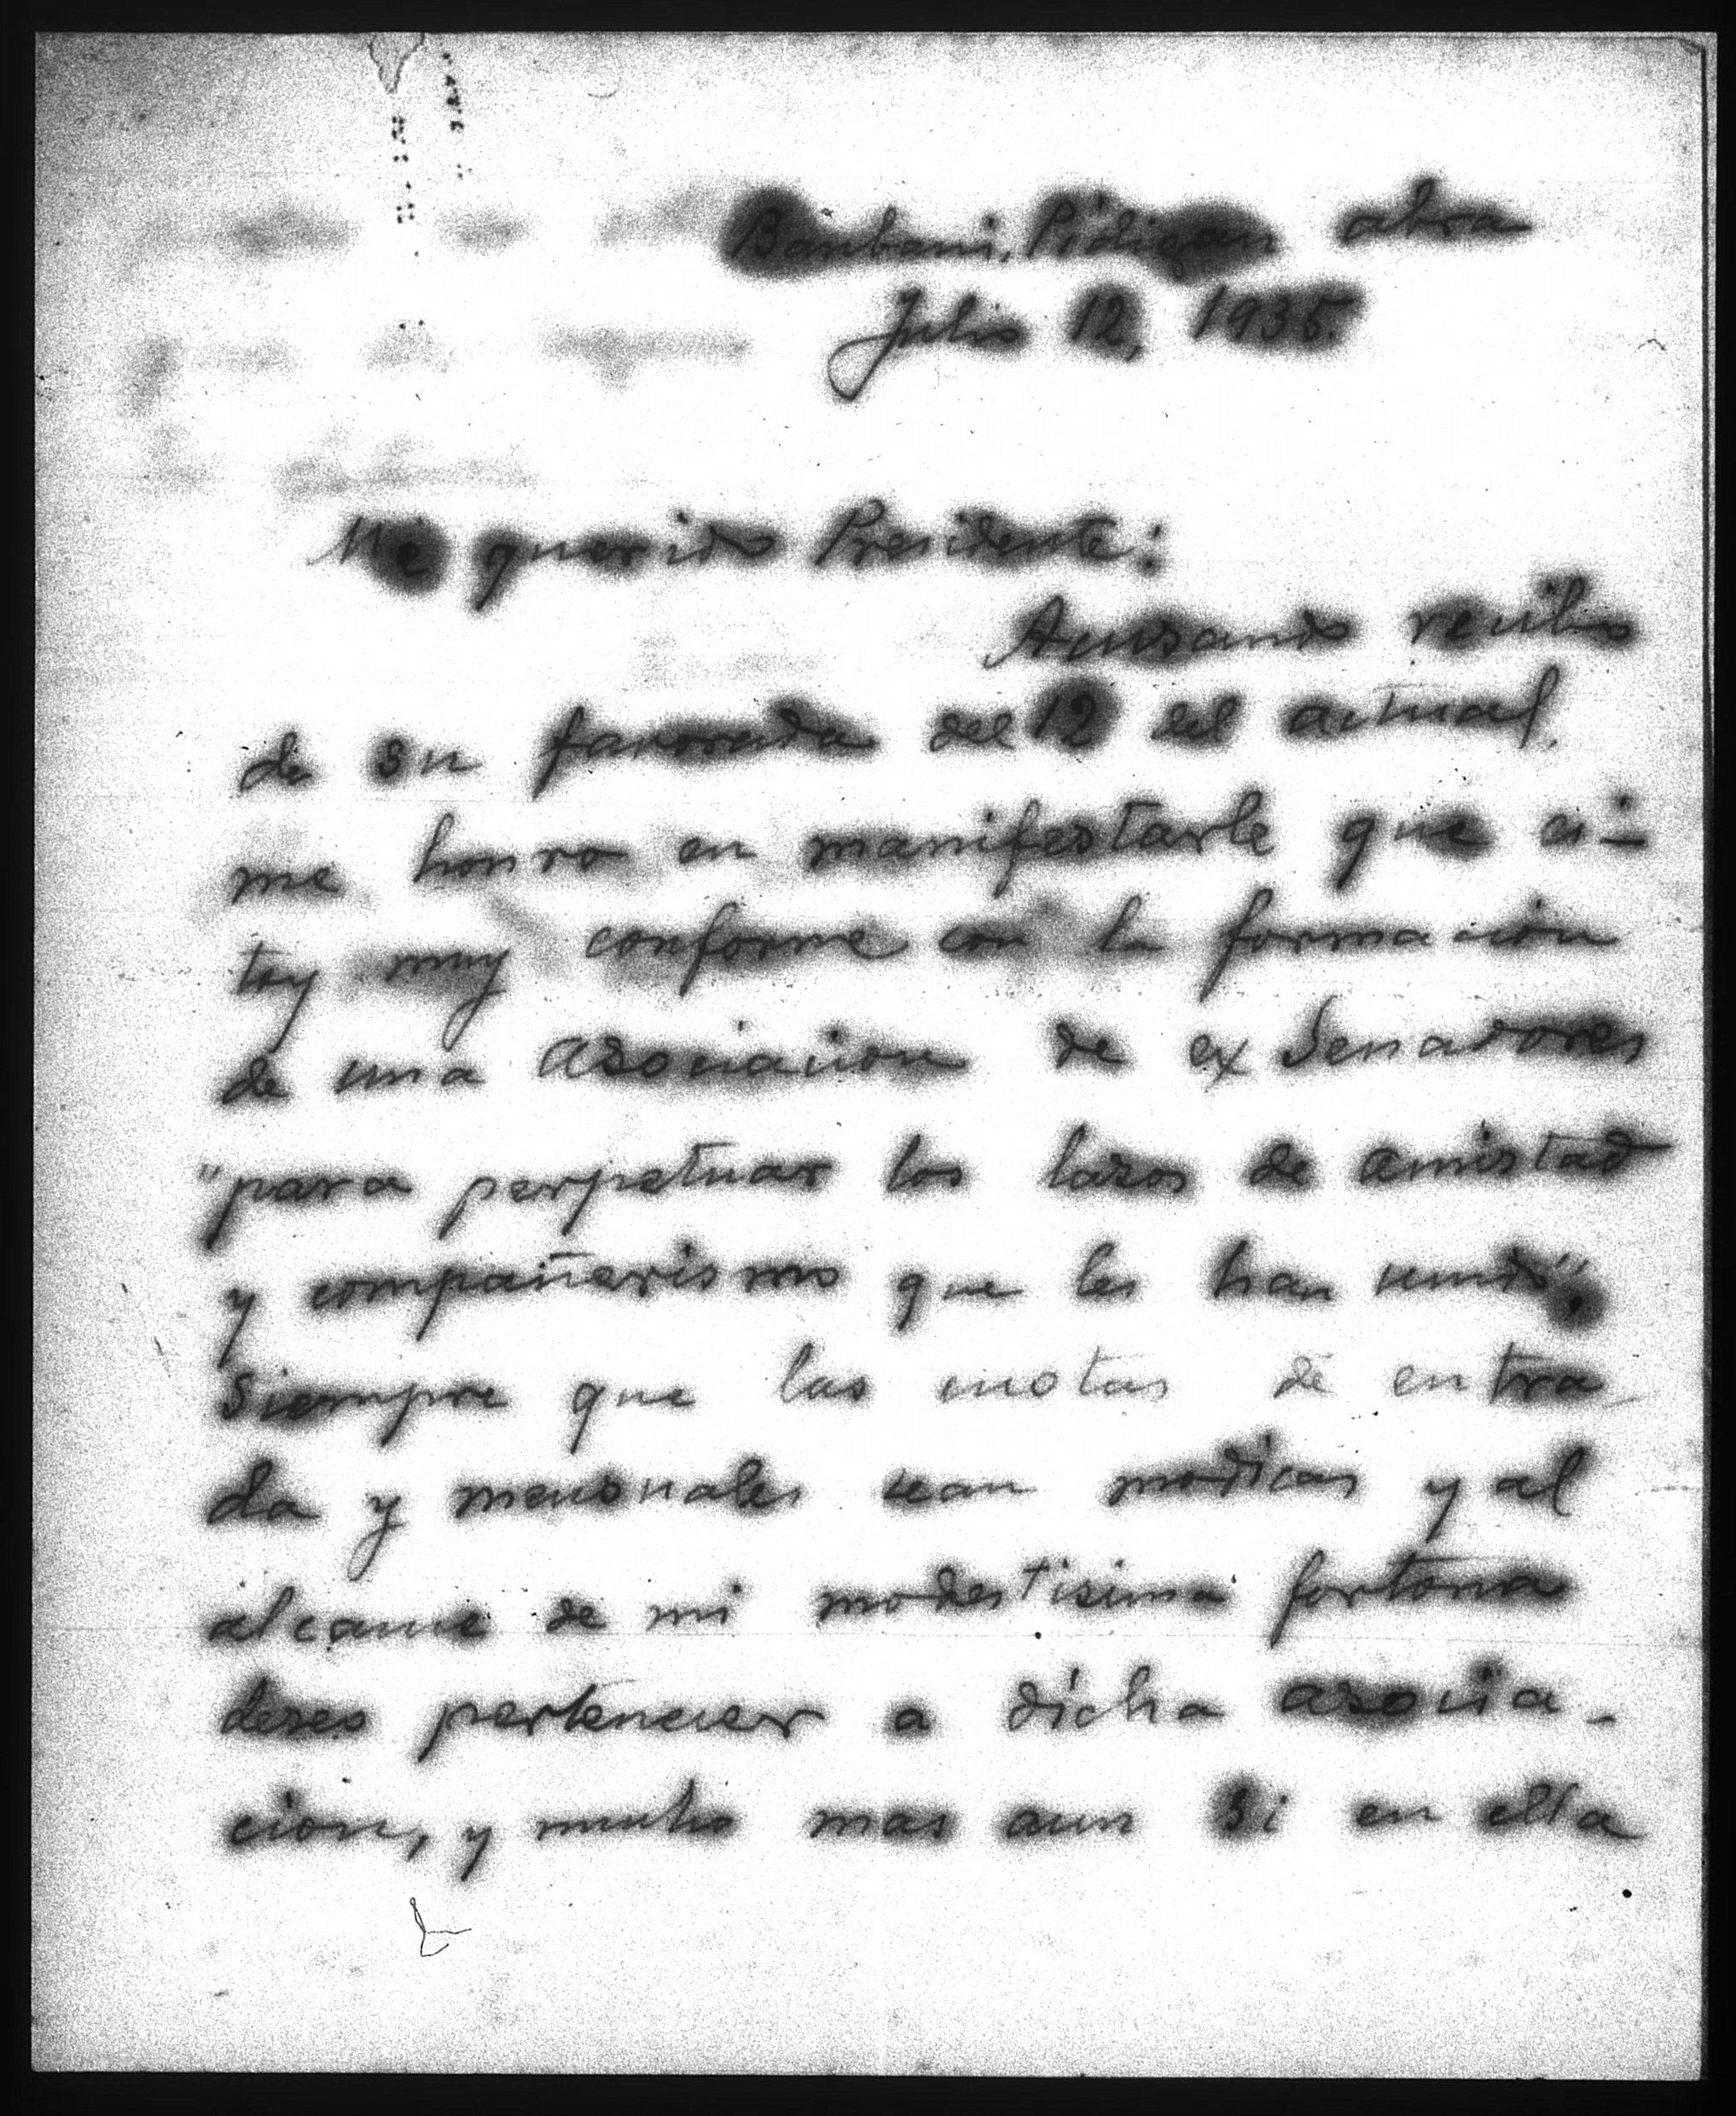 Pidigan abra
Julio 12, 1935.
Mi querido Presidente:
Acusando recibo
de su favorada del 12 del actual,
me honro en manifestarle que es-
toy muy conforme con la formacion
de una asociacion de ex Senadores
"para perpetuar los lazos de amistad
y compañerismo que les han unido".
Siempre que las cuotas de entra-
da y mensuales sean modicas y al
alcance de mi modestisima fortuna
deseo pertenecer a dicha asocia-
cion, y mucho mas aun si en ella